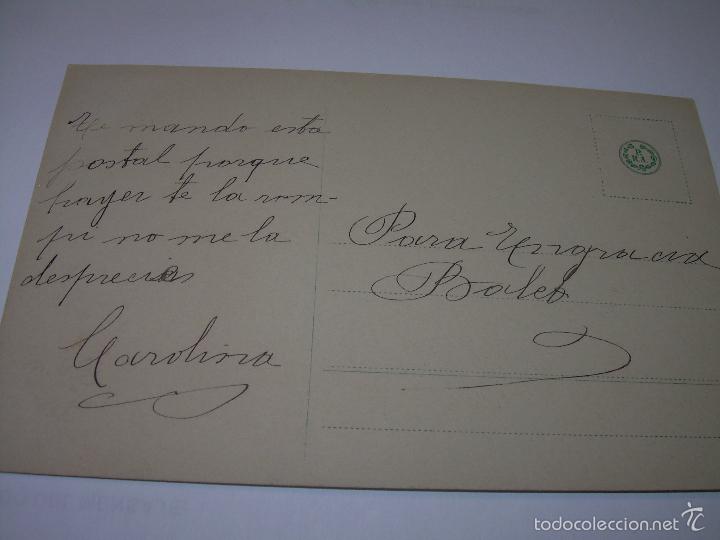 Te mando esta
postal porque
hayer te la rom-
pi no me la
desprecias
Carolina
Para Engracia
todocoleccion.net